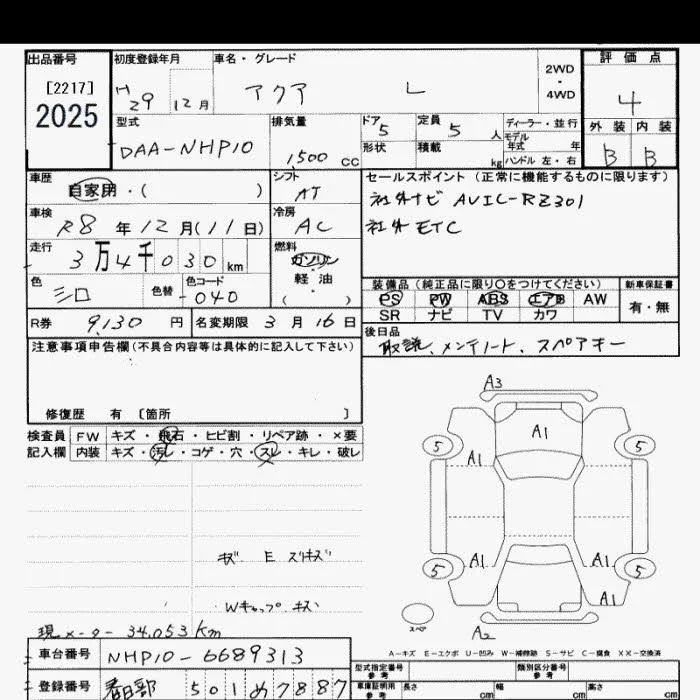 出品番号 [2217] 2025
初度登録年月 H 29 12月
車名・グレード アクア L
2WD・4WD
評価点 4
外装 内装 B B
型式 DAA-NHP10
排気量 1500 CC
ドア 5 形状
定員 5 人 積載 kg
ディーラー・並行
モデル年式 年
ハンドル 左・右
車歴 自家用・( )
シフト AT
車検 R8 年 12月(11日)
冷房 AC
走行 3万4千030km
燃料 ガソリン 軽油 ( )
色 シロ 色替
色コード 040
R券 9,130 円
名変期限 3月16日
セールスポイント (正常に機能するものに限ります)
社外ナビ AVIC-RZ301
社外 ETC
装備品 (純正品に限り〇をつけてください)
PS PW ABS エアB AW
SR ナビ TV カワ
新車保証書 有・無
後日品
取説、メンテノート、スペアキー
注意事項申告欄(不具合内容等は具体的に記入して下さい)
修復歴 有 〔箇所 〕
検査員記入欄
FW キズ・飛石・ヒビ割・リペア跡・×要
内装 キズ・汚レ・コゲ・穴・スレ・キレ・破レ
キズ E スリキズ
Wキャップ キズ
現メーター 34,053 km
A3
A1
5 5
A1
A1 A1
5 5
A1
A2
スペア
A-キズ E-エクボ U-凹み W-補修跡 S-サビ C-腐食 XX-交換済
車台番号 NHP10-6689313
登録番号 春日部 501 め 7887
型式指定番号 参考
類別区分番号 参考
車庫証明用 参考 長さ cm 幅 cm 高さ cm